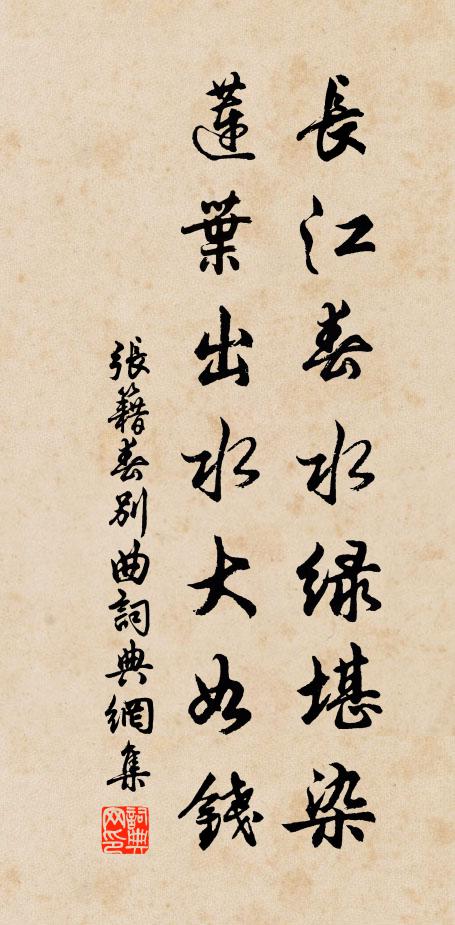 長江春水綠堪染
蓮葉出水大如錢
張籍春別曲詞典網集
詞典網印